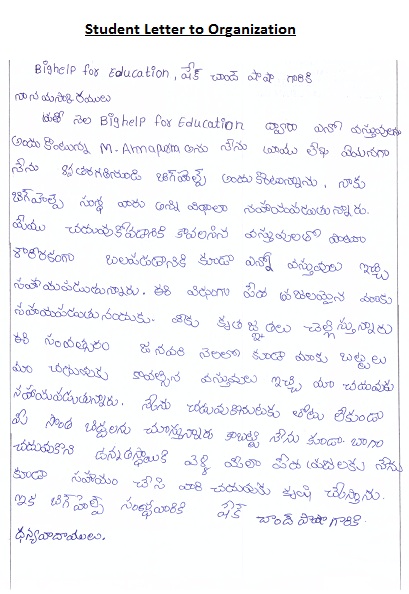 Student Letter to Organization
Bighelp for Education, షేక్ చాంద్ పాషా గారికి
నా నమస్కారములు
ప్రతి నెల Bighelp for Education ద్వారా ఎన్నో వస్తువులు
అందుకొంటున్న M. Annapurna అను నేను వ్రాయు లేఖ ఏమనగా
నేను తరగతినుండి బిగ్‌హెల్ప్ అందుకొంటున్నాను, నాకు
బిగ్‌హెల్ప్ సంస్థ వారు అన్ని విధాలా సహాయపడుతున్నారు.
మేము చదువుకోవడానికి కావలసిన వస్తువులతో పాటుగా
శారీరకంగా బలపడడానికి కూడా ఎన్నో వస్తువులు ఇచ్చి
సహాయపడుతున్నారు. ఈ విధంగా పేద ప్రజలమైన మాకు
సహాయపడుతునందుకు. కృతజ్ఞతలు చెల్లిస్తున్నారు
ఈ సంవత్సరం జనవరి నెలలో కూడా మాకు బట్టలు
మా చదువుకు కావల్సిన వస్తువులు ఇచ్చి మా చదువుకు
సహాయపడుతున్నారు. నేను చదువుకొనుటకు లోటు లేకుండా
మీ సొంత బిడ్డలను చూస్తున్నారు కాబట్టి నేను కూడా బాగా
చదువుకొని ఉన్నతస్థాయికి వెళ్ళి మీలా పేద ప్రజలకు నేను
కూడా సహాయం చేసి వారి చదువుకు కృషి చేస్తాను.
ఇక బిగ్‌హెల్ప్ సంస్థవారికి షేక్ చాంద్ పాషా గారికి
ధన్యవాదాములు.